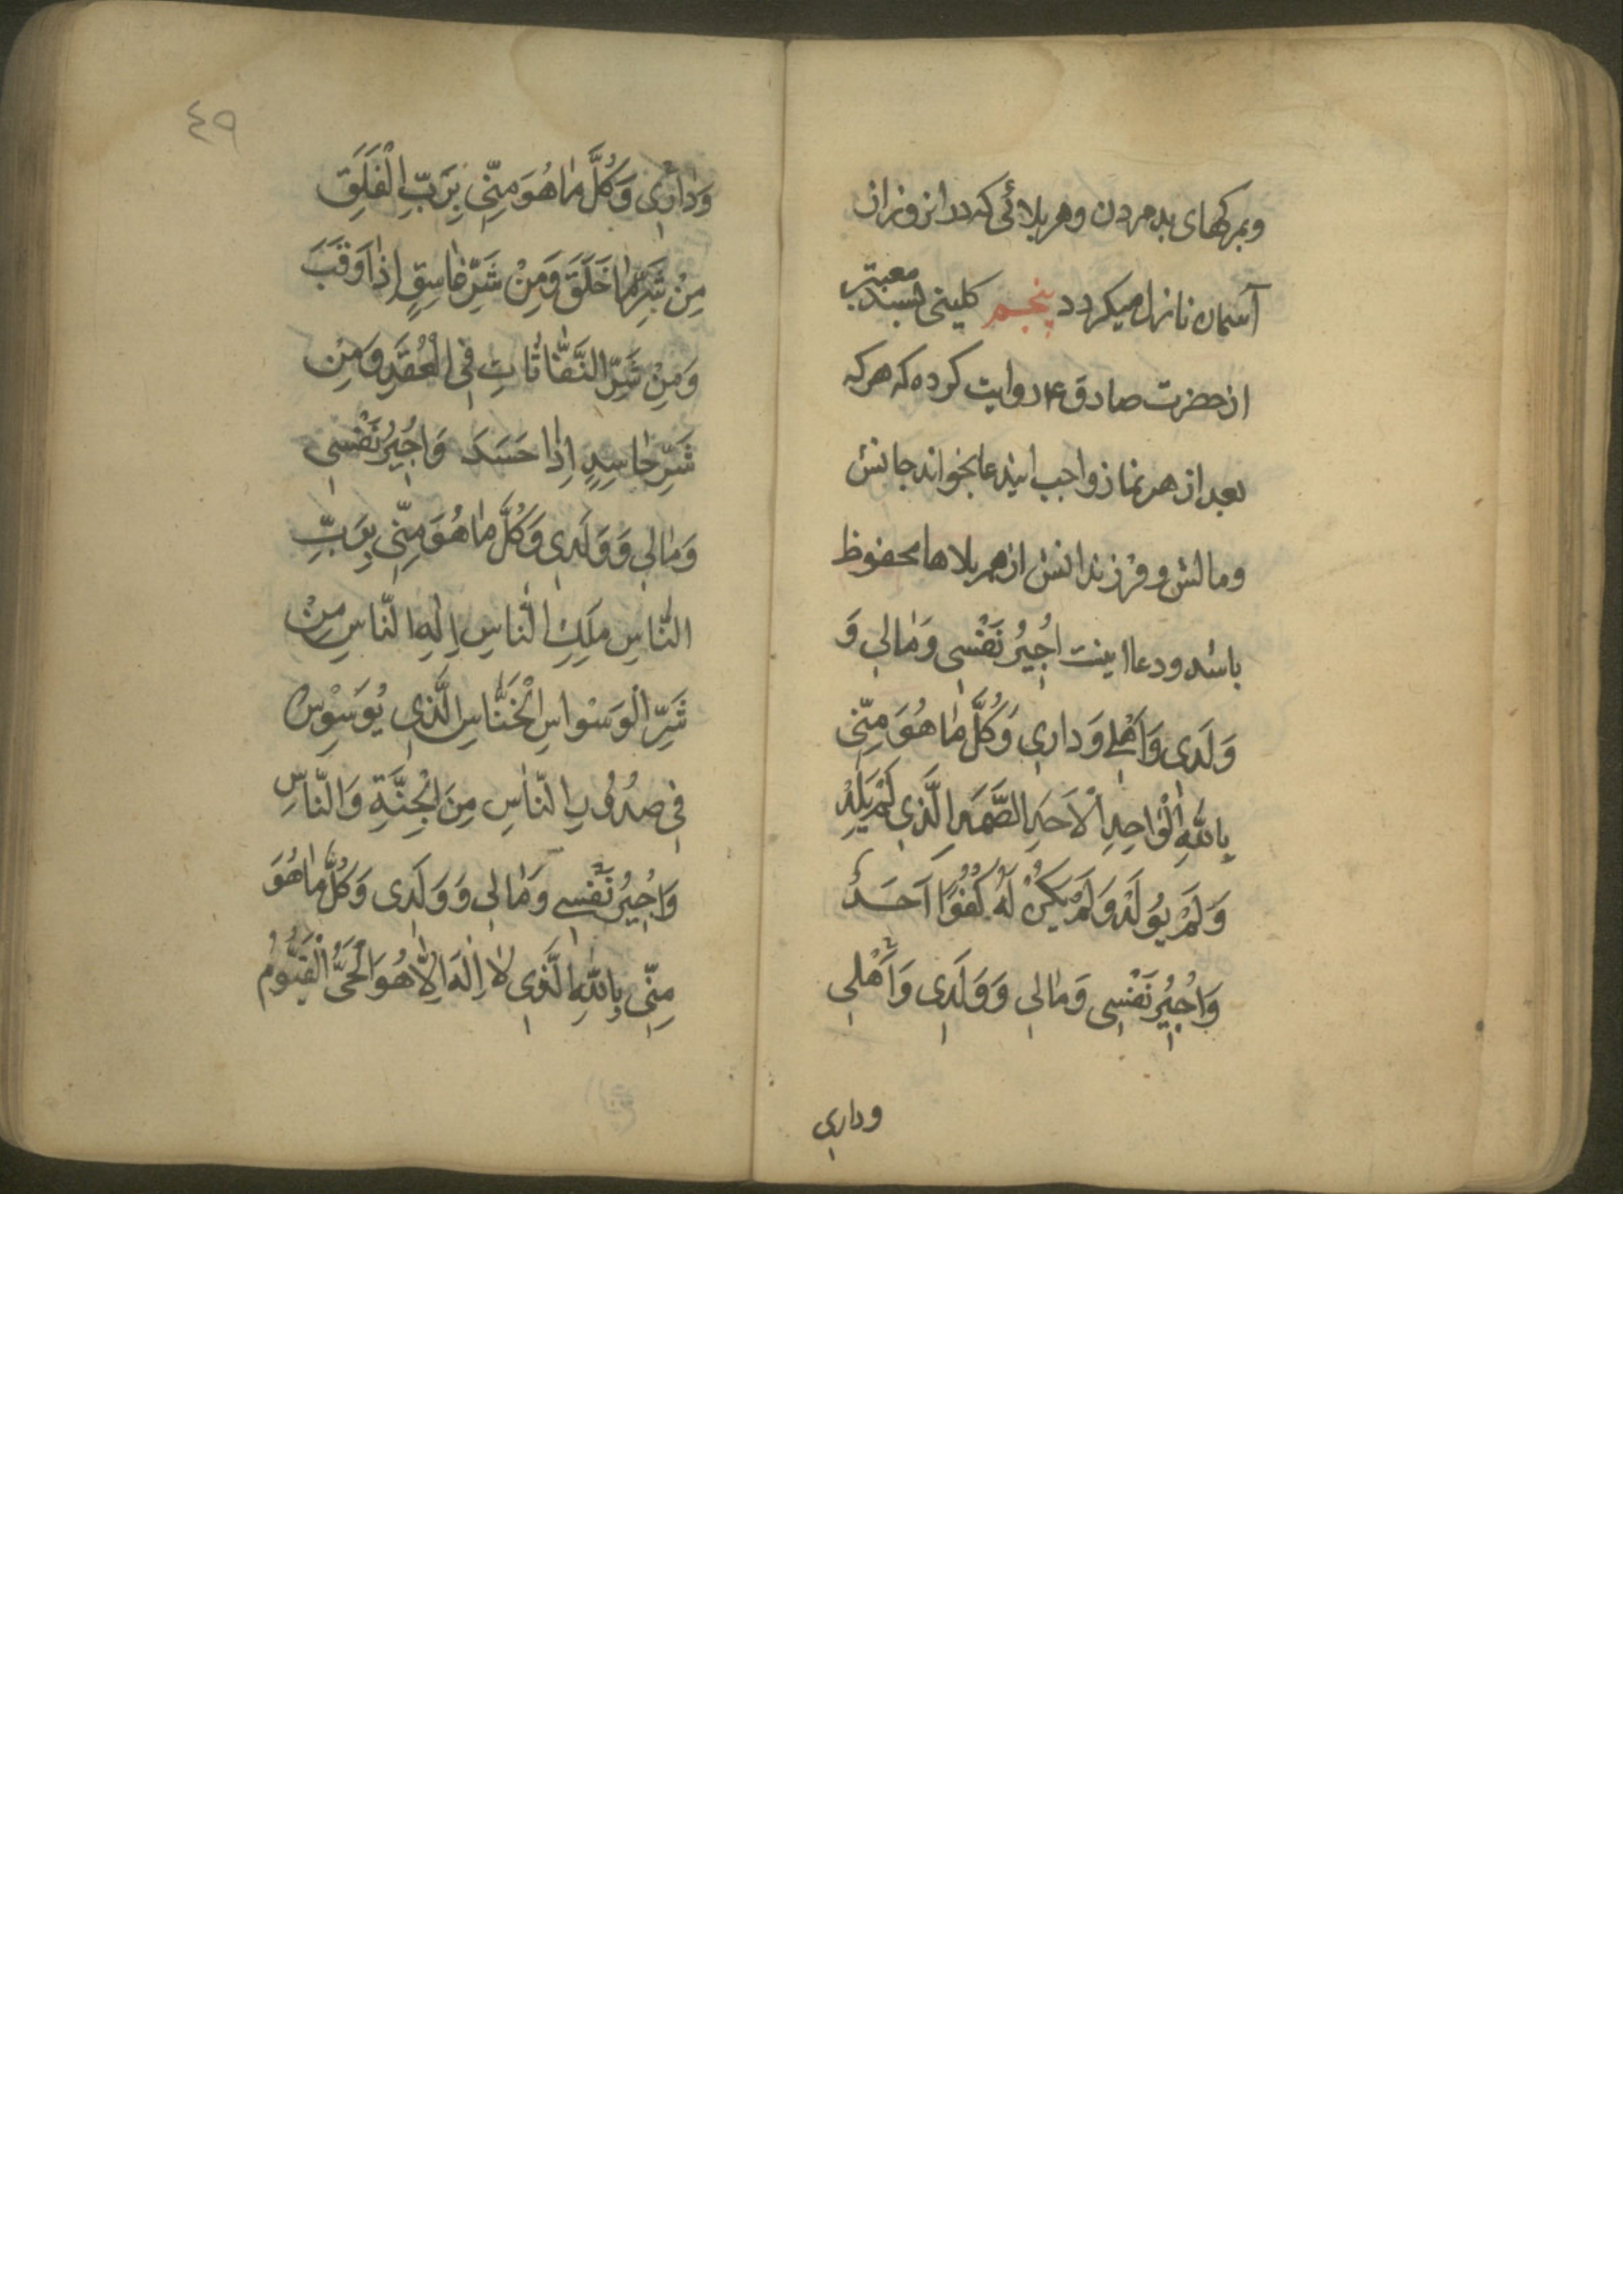 وبمرکهای بد مردن وهر بلائی که در انروز از
آسمان نازل میکردد پنجم کلینی بسند معتبر
از حضرت صادق ع روایت کرده که هر که
بعد از هر نماز واجب ایندعا بخواند جانش
ومالش وفرزندانش از هر بلاها محفوظ
باشد ودعا اینست اُجِيرُ نَفْسِي وَمَالِي وَ
وَلَدِي وَاَهْلِي وَدارِي وَكُلَّ مٰا هُوَ مِنِّي
بِاللّٰهِ الْوٰاحِدِ الْاَحَدِ الصَّمَدِ الَّذِي لَمْ يَلِدْ
وَلَمْ يُولَدْ وَلَمْ يَكُنْ لَهُ كُفُوًا اَحَدٌ
وَاُجِيرُ نَفْسِي وَمٰالِي وَوَلَدِي وَاَهْلِي
وداري
٤٩
وَدٰارِي وَكُلَّ مٰا هُوَ مِنِّي بِرَبِّ الْفَلَقِ
مِنْ شَرِّ مٰا خَلَقَ وَمِنْ شَرِّ غٰاسِقٍ اِذٰا وَقَبَ
وَمِنْ شَرِّ النَّفّٰاثٰاتِ فِي الْعُقَدِ وَمِنْ
شَرِّ حٰاسِدٍ اِذٰا حَسَدَ وَاُجِيرُ نَفْسِي
وَمٰالِي وَوَلَدِي وَكُلَّ مٰا هُوَ مِنِّي بِرَبِّ
النّٰاسِ مَلِكِ النّٰاسِ اِلٰهِ النّٰاسِ مِنْ
شَرِّ الْوَسْوٰاسِ الْخَنّٰاسِ الَّذِي يُوَسْوِسُ
فِي صُدُورِ النّٰاسِ مِنَ الْجِنَّةِ وَالنّٰاسِ
وَاُجِيرُ نَفْسِي وَمٰالِي وَوَلَدِي وَكُلَّ مٰا هُوَ
مِنِّي بِاللّٰهِ الَّذِي لٰا اِلٰهَ اِلّٰا هُوَ الْحَيُّ الْقَيُّومُ